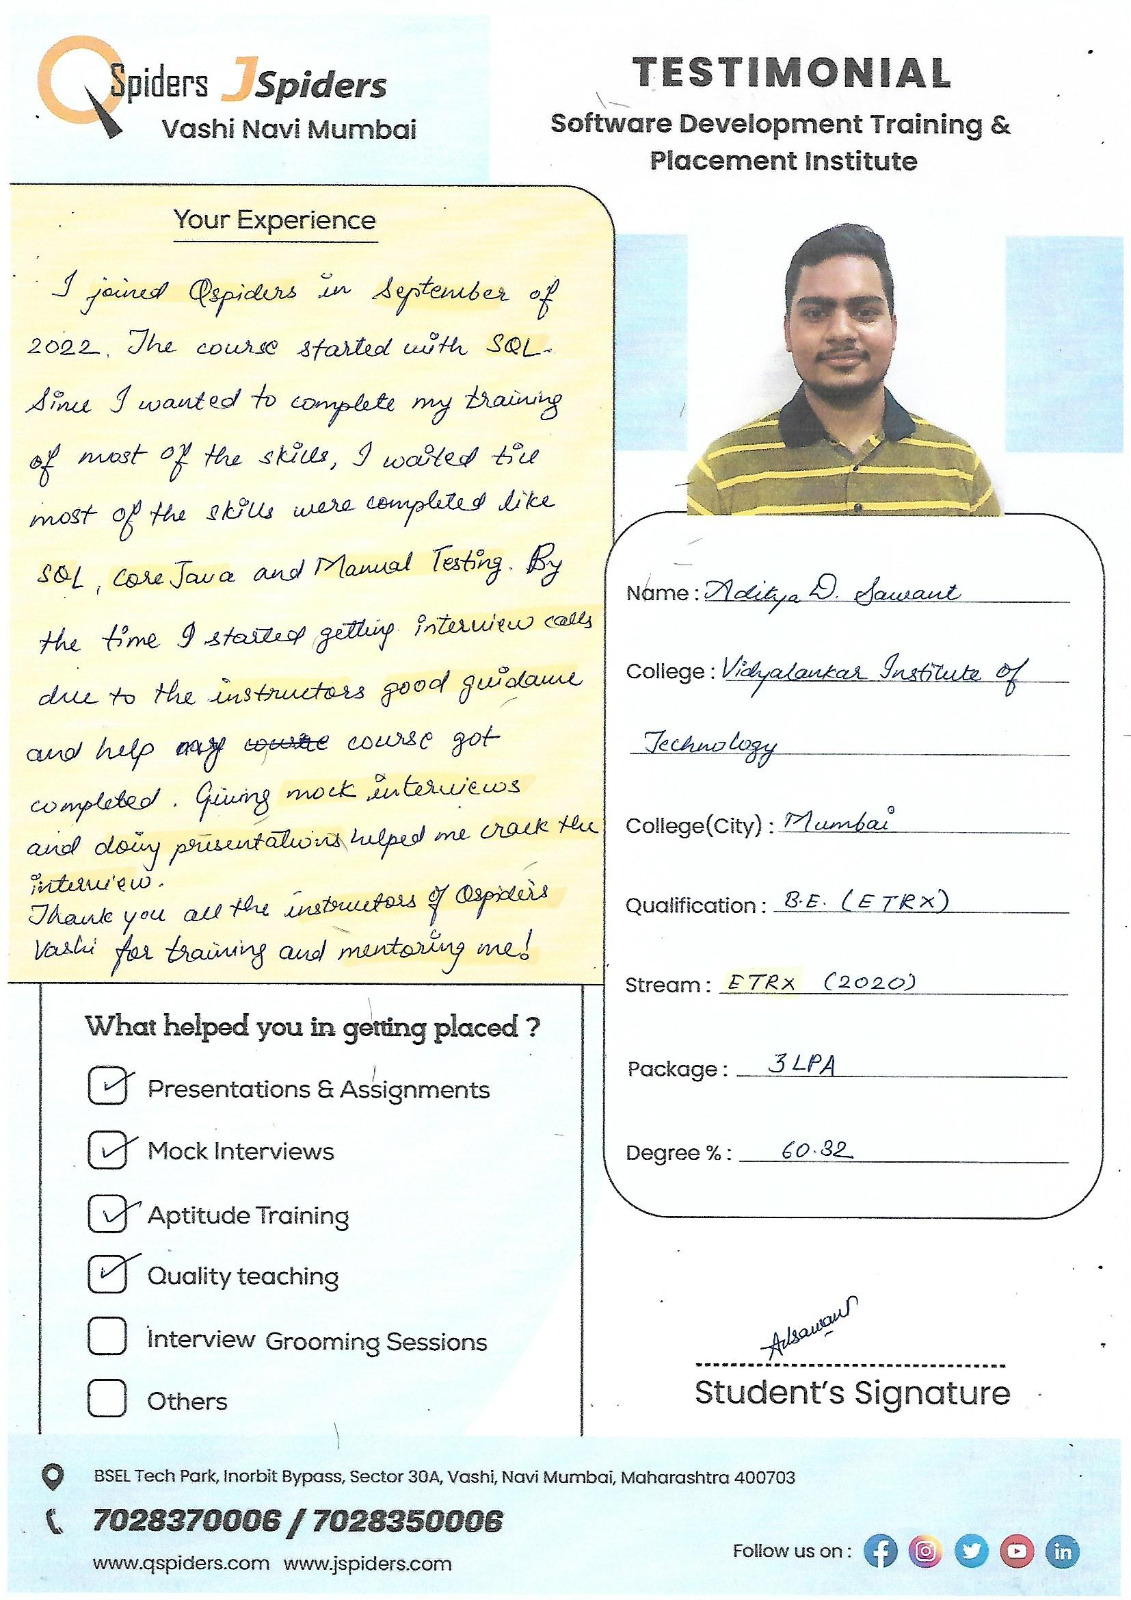 QSpiders JSpiders
Vashi Navi Mumbai
TESTIMONIAL
Software Development Training &
Placement Institute
Your Experience
I joined Qspiders in September of
2022. The course started with SQL.
Since I wanted to complete my training
of most of the skills, I waited till
most of the skills were completed like
SQL, Core Java and Manual Testing. By
the time I started getting interview calls
due to the instructors good guidance
and help my course course got
completed. Giving mock interviews
and doing presentations helped me crack the
interview.
Thank you all the instructors of Qspiders
Vashi for training and mentoring me!
Name : Aditya D. Sawant
College : Vidyalankar Institute of
Technology
College(City) : Mumbai
Qualification : B.E. (ETRX)
Stream : ETRX (2020)
Package : 3 LPA
Degree % : 60.32
What helped you in getting placed ?
Presentations & Assignments
Mock Interviews
Aptitude Training
Quality teaching
Interview Grooming Sessions
Others
Adsawant
Student's Signature
BSEL Tech Park, Inorbit Bypass, Sector 30A, Vashi, Navi Mumbai, Maharashtra 400703
7028370006 / 7028350006
www.qspiders.com www.jspiders.com
Follow us on :